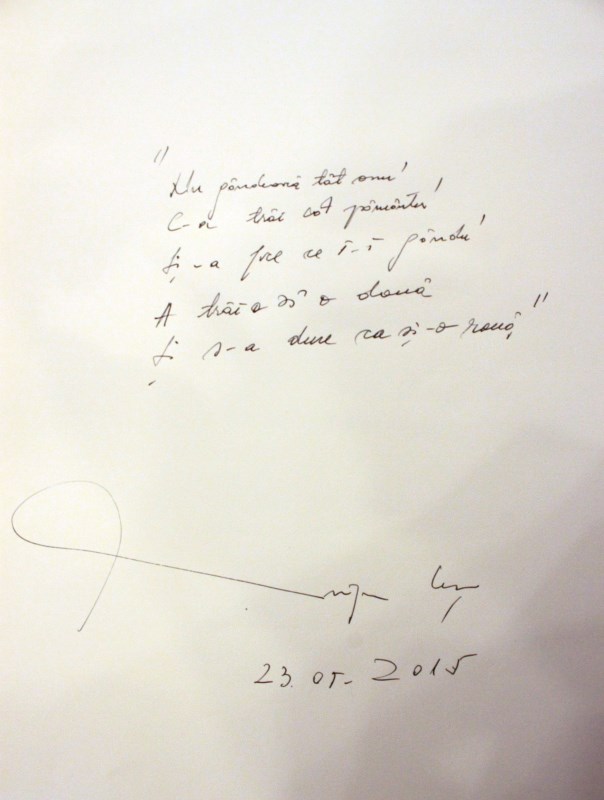 "Nu gândească tăt omu'
C-a trăi cât pământu'
Și-a fce ce i-i gându'
A trăi o zî o două
Și s-a duce ca și-o rouă"
23.05.2015